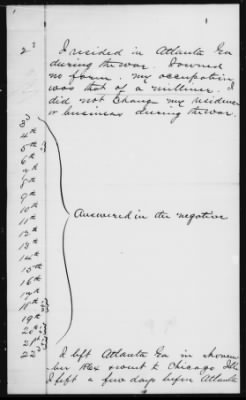 2d I resided in Atlanta Ga
during the war. I owned
no farm. my occupation
was that of a milliner. I
did not change my residence
or business during the war.
3d
4th
5th
6th
7th
8th
9th
10th
11th
12th
13th
14th
15th
16th
17th
18th
19th
20th
21st
22d
Answered in the negative
I left Atlanta Ga in Novem
ber 1864 & went to Chicago Ills
I left a few days before Atlanta